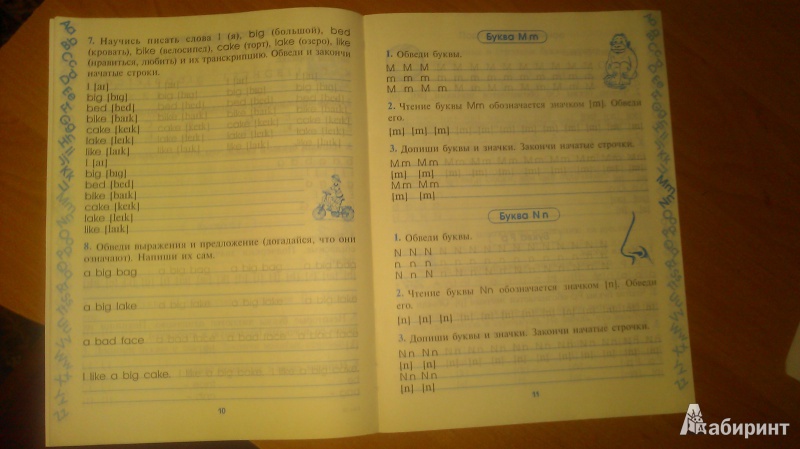 7. Научись писать слова I (я), big (большой), bed
(кровать), bike (велосипед), cake (торт), lake (озеро), like
(нравиться, любить) и их транскрипцию. Обведи и закончи
начатые строки.
I [aɪ]
big [bɪg]
bed [bed]
bike [baɪk]
cake [keɪk]
lake [leɪk]
like [laɪk]
I [aɪ]
big [bɪg]
bed [bed]
bike [baɪk]
cake [keɪk]
lake [leɪk]
like [laɪk]
8. Обведи выражения и предложение (догадайся, что они
означают). Напиши их сам.
a big bag a big bag a big bag a big bag
a big lake a big lake a big lake a big lake
a bad face a bad face a bad face a bad face
I like a big cake. I like a big cake. I like a big cake.
10
Буква Mm
1. Обведи буквы.
M M M
m m m
M m M
2. Чтение буквы Mm обозначается значком [m]. Обведи
его.
[m] [m] [m]
3. Допиши буквы и значки. Закончи начатые строчки.
Mm Mm
[m] [m]
Mm Mm
[m] [m]
Mm
Буква Nn
1. Обведи буквы.
N N N
n n n
N n N
2. Чтение буквы Nn обозначается значком [n]. Обведи
его.
[n] [n] [n]
3. Допиши буквы и значки. Закончи начатые строчки.
Nn Nn
[n] [n]
Nn Nn
[n] [n]
11
Лабиринт